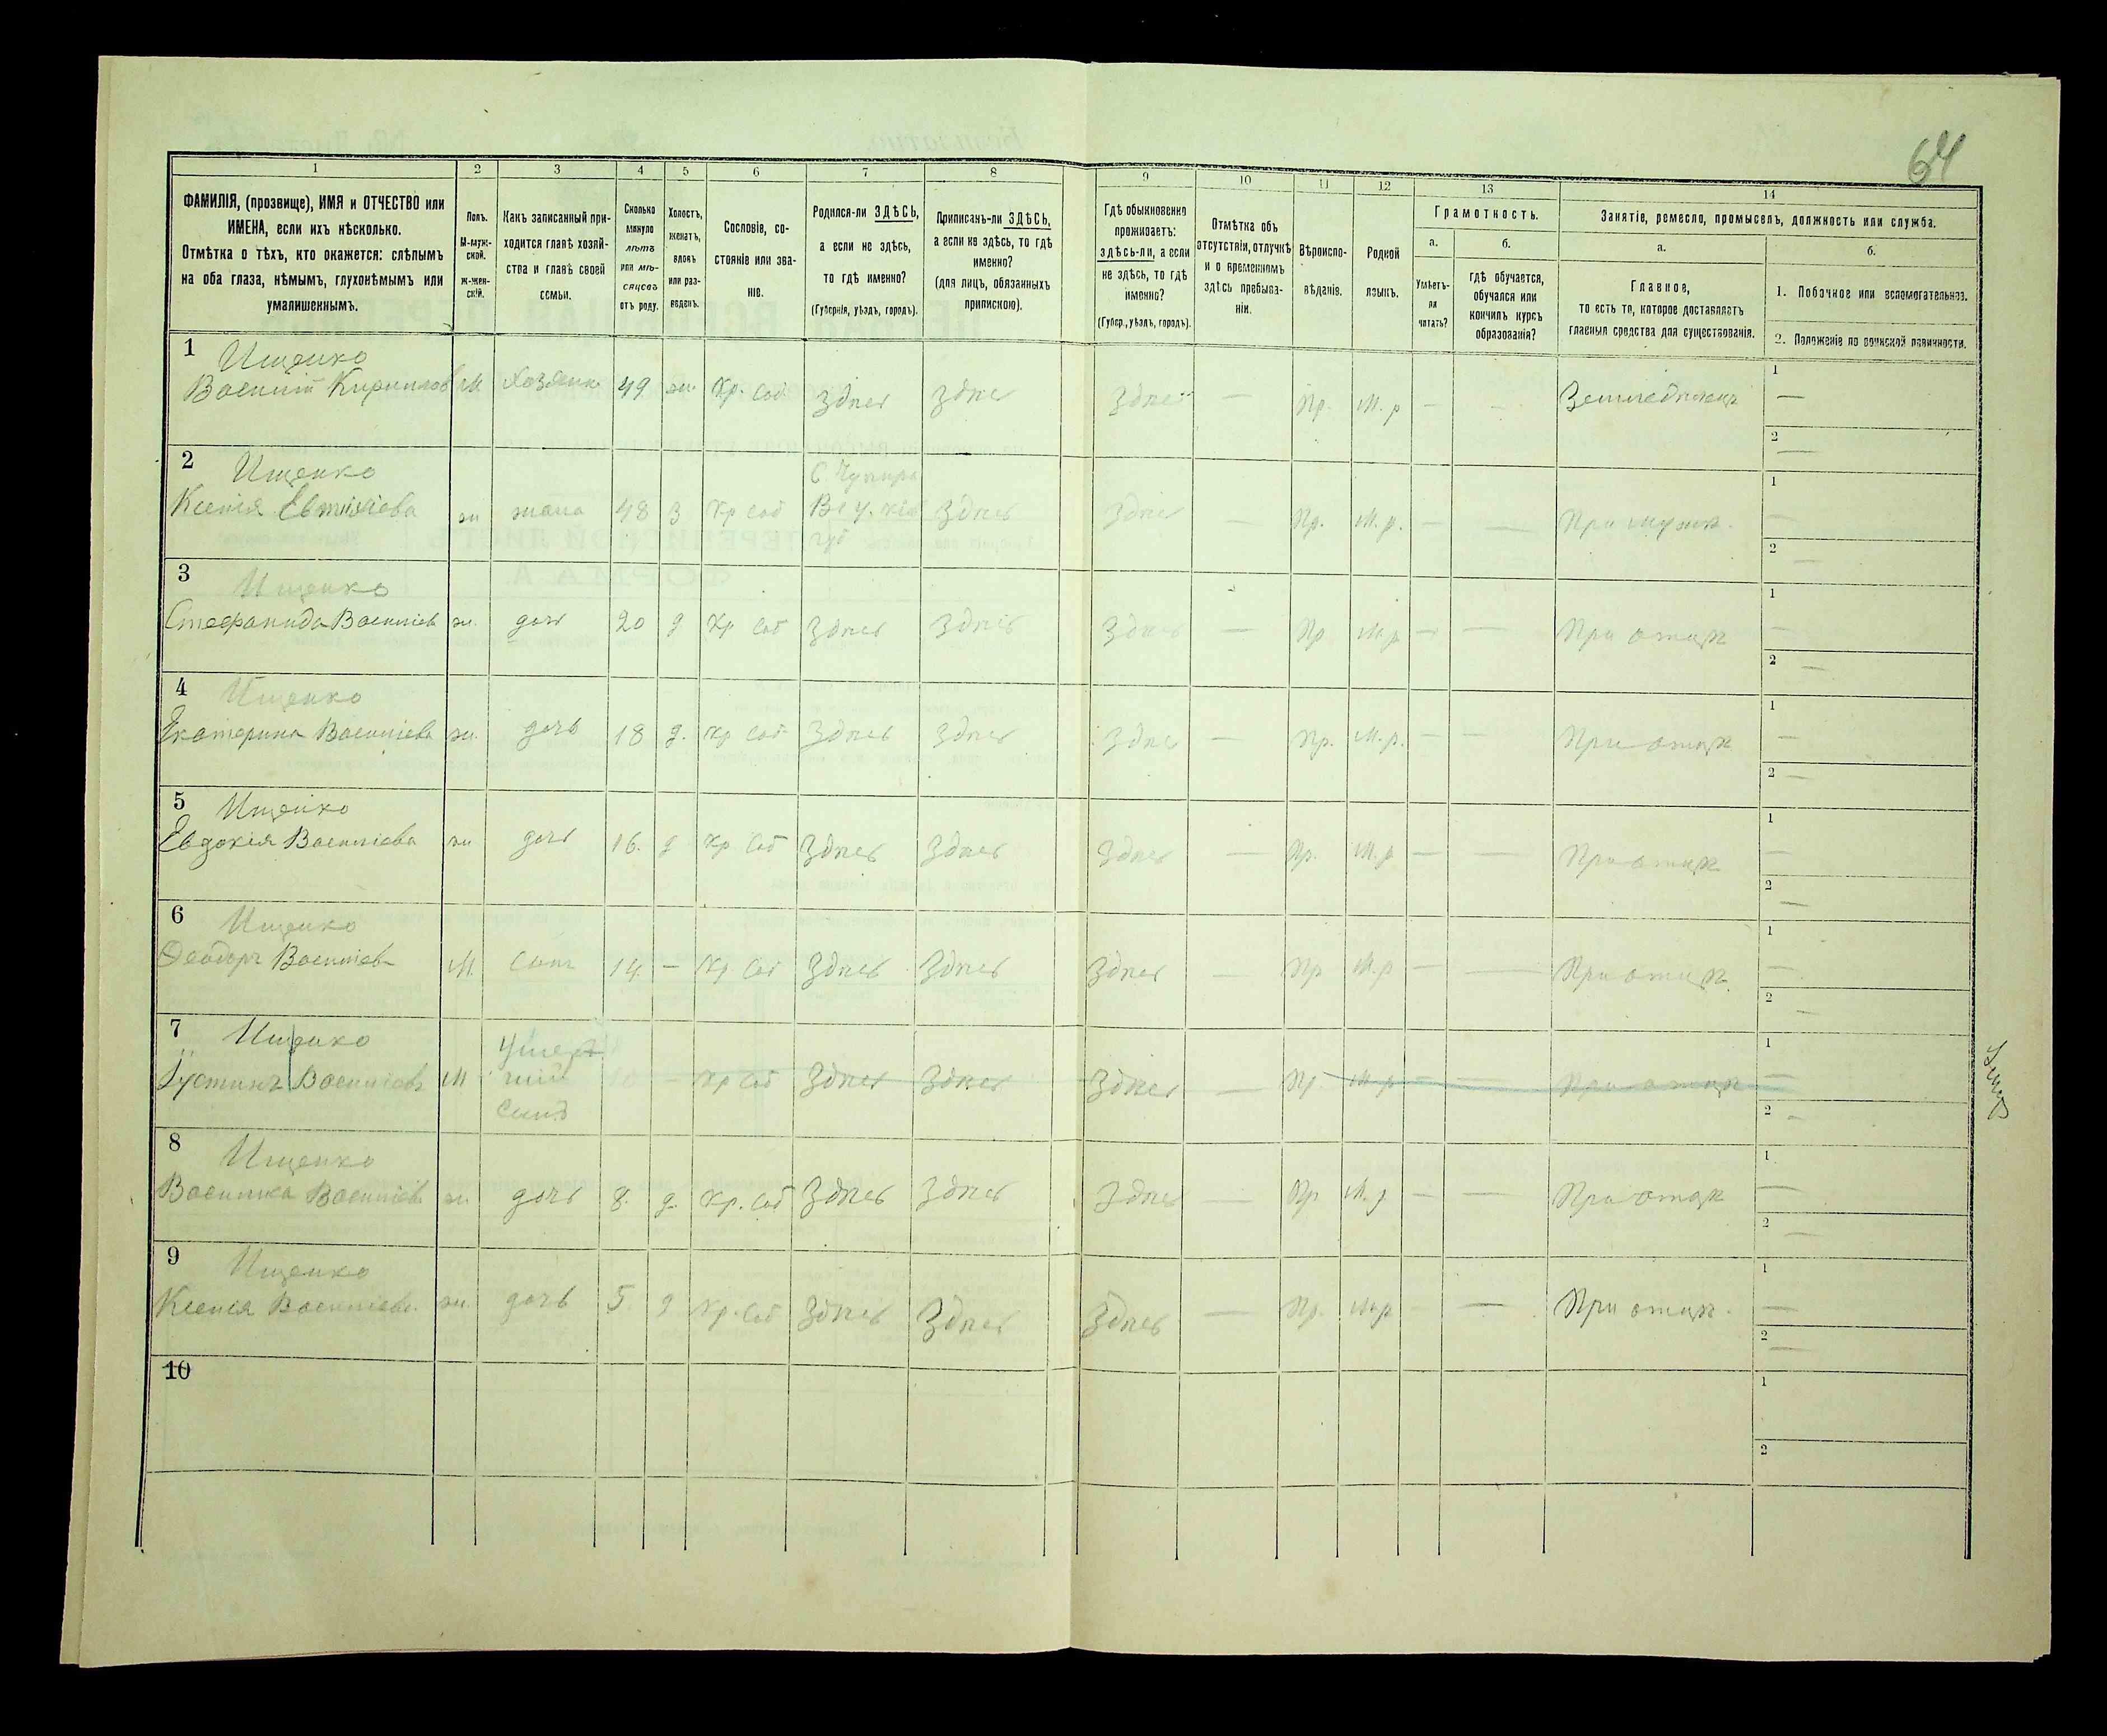 64
1 2 3 4 5 6 7 8 9 10 11 12 13 14
ФАМИЛІЯ, (прозвище), ИМЯ и ОТЧЕСТВО или
ИМЕНА, если ихъ нѣсколько.
Отмѣтка о тѣхъ, кто окажется: слѣпымъ
на оба глаза, нѣмымъ, глухонѣмымъ или
умалишеннымъ.
Полъ.
М-муж-
ской.
Ж-жен-
скій.
Какъ записанный при-
ходится главѣ хозяй-
ства и главѣ своей
семьи.
Сколько
минуло
лѣтъ
или мѣ-
сяцевъ
отъ роду.
Холостъ,
женатъ,
вдовъ
или раз-
веденъ.
Сословіе, со-
стояніе или зва-
ніе.
Родился-ли ЗДѢСЬ,
а если не здѣсь,
то гдѣ именно?
(Губернія, уѣздъ, городъ).
Приписанъ-ли ЗДѢСЬ,
а если не здѣсь, то гдѣ
именно?
(для лицъ, обязанныхъ
припискою).
Гдѣ обыкновенно
проживаетъ:
здѣсь-ли, а если
не здѣсь, то гдѣ
именно?
(Губер., уѣздъ, городъ).
Отмѣтка объ
отсутствіи, отлучкѣ
и о временномъ
здѣсь пребыва-
ніи.
Вѣроиспо-
вѣданіе.
Родной
языкъ.
Грамотность.
а.
Умѣетъ-
ли
читать?
б.
гдѣ обучается,
обучался или
кончилъ курсъ
образованія?
Занятіе, ремесло, промыселъ, должность или служба.
а.
Главное,
то есть то, которое доставляетъ
главныя средства для существованія.
б.
1. Побочное или вспомогательное.
2. Положеніе по воинской повинности.
1 Ищенко
Василій Кириловъ М Хозяинъ 49 ж. Кр. соб. Здѣсь Здѣсь Здѣсь — Пр. М.р — — Земледѣлецъ 1 —
2 —
2 Ищенко
Ксенія Евтихіева ж жена 48 з Кр соб Здѣсь Здѣсь — Пр. М.р. — — При мужѣ. 1 —
губ
2 —
3 Ищенко
Стефанида Васильев ж. дочь 20 д Кр соб Здѣсь Здѣсь Здѣсь — Пр М.р — — При отцѣ 1 —
2 —
4 Ищенко
Екатерина Васильева ж. дочь 18 д. Кр соб Здѣсь Здѣсь Здѣсь — Пр. М.р. — — При отцѣ 1 —
2 —
5 Ищенко
Евдокія Васильева ж дочь 16. д Кр соб Здѣсь Здѣсь Здѣсь — Пр. М.р — — При отцѣ 1 —
2 —
6 Ищенко
Ѳеодоръ Васильев М. сынъ 14 — Кр соб Здѣсь Здѣсь Здѣсь — Пр М.р — — При отцѣ. 1 —
2 —
7 Ищенко
Іустинъ Васильевъ М сынъ — Кр соб Здѣсь Здѣсь Здѣсь — Пр М.р — — При отцѣ 1 —
2 —
8 Ищенко
Василиса Васильев ж. дочь 8. д. Кр. соб Здѣсь Здѣсь Здѣсь — Пр М.р — — При отцѣ 1 —
2 —
9 Ищенко
Ксенія Васильева ж. дочь 5 д Кр. соб Здѣсь Здѣсь Здѣсь — Пр. М.р — — При отцѣ. 1 —
2 —
10 1
2